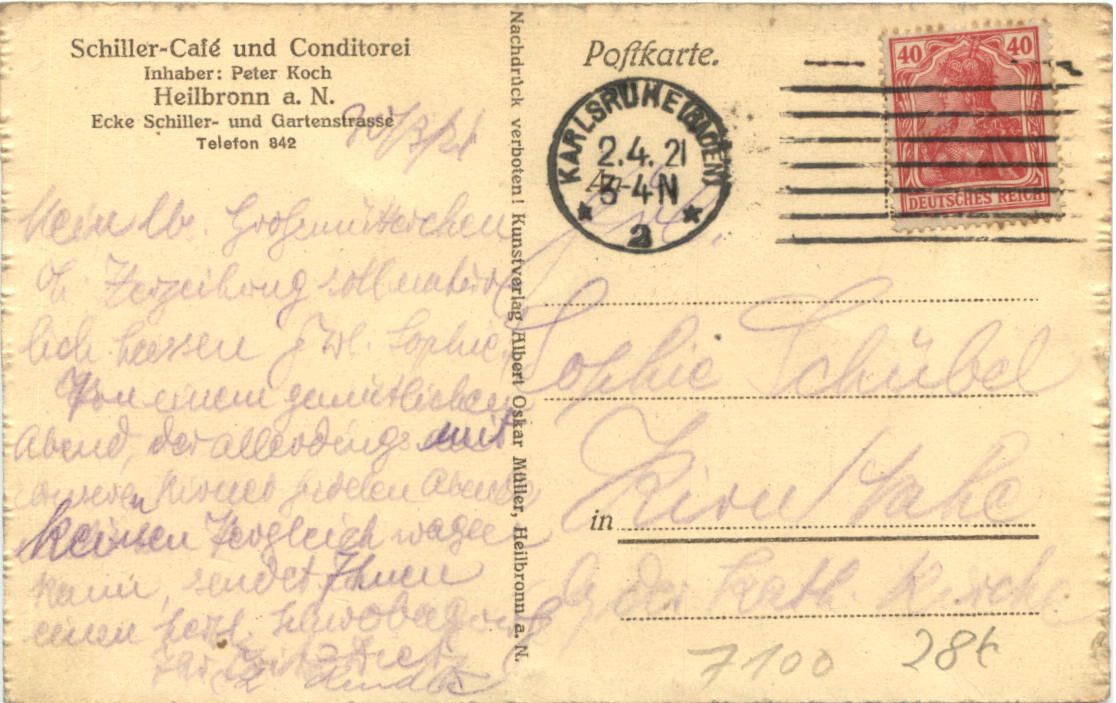 Schiller-Café und Conditorei
Inhaber: Peter Koch
Heilbronn a. N.
Ecke Schiller- und Gartenstrasse
Telefon 842
Mein lb. Großmütterchen
Verzeihung soll natür
lich heissen Frl. Sophie.
Von einem gemütlichen
Abend, der allerdings mit
unseren Kirner fidelen Abenden
keinen Vergleich wagen
kann, sendet Ihnen
einen herzl.
Nachdruck verboten! Kunstverlag Albert Oskar Müller, Heilbronn a. N.
Postkarte.
KARLSRUHE (BADEN)
2.4.21
3-4 N
* 2 *
40 40
DEUTSCHES REICH
An
Frl.
Sophie Schübel
in Kirn Nahe
der kath. Kirche
7100 28t